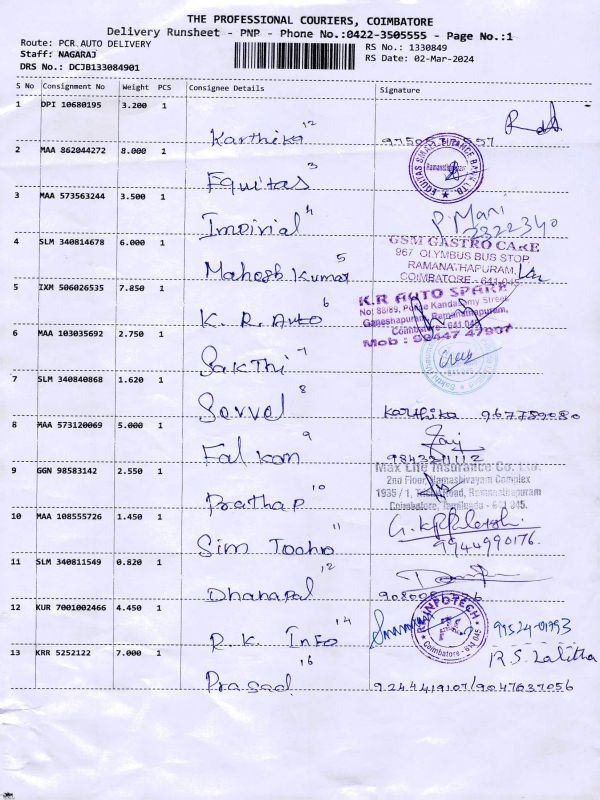 THE PROFESSIONAL COURIERS, COIMBATORE
Delivery Runsheet - PNP - Phone No.:0422-3505555 - Page No.:1
Route: PCR.AUTO DELIVERY
Staff: NAGARAJ
DRS No.: DCJB133084901
RS No.: 1330849
RS Date: 02-Mar-2024
S No Consignment No Weight PCS Consignee Details Signature
1 DPI 10680195 3.200 1
Karthika 12
2 MAA 862044272 8.000 1
EQUITAS SMALL FINANCE BANK LTD.
Ramanathapuram
Equitas 3
3 MAA 573563244 3.500 1
P. Mani
2322340
Impirial 4
4 SLM 340814678 6.000 1
GSM GASTRO CARE
967 OLYMBUS BUS STOP,
RAMANATHAPURAM,
COIMBATORE - 641 045
Mahesh Kumar 5
5 IXM 506026535 7.850 1
K.R AUTO SPARE
Ganeshapuram, Ramanathapuram,
Coimbatore - 641 045
Mob : 98447 47907
K. R. Auto 6
6 MAA 103035692 2.750 1
Sakthi 7
7 SLM 340840868 1.620 1
Karthika
8
8 MAA 573120069 5.000 1
9843211112
Falkon 9
9 GGN 98583142 2.550 1
Max Life Insurance Co. Ltd.
2nd Floor, Namashivayam Complex
1935 / 1, Trichy Road, Ramanathapuram
Coimbatore, Tamilnadu - 641 045.
Prathap 10
10 MAA 108555726 1.450 1
9944990176.
Sim 11
11 SLM 340811549 0.820 1
Dhanapal 12
12 KUR 7001002466 4.450 1
INFOTECH
Coimbatore - 641 045
99524-01993
R. K. Info 14
13 KRR 5252122 7.000 1
R.S. Lalitha
Prasad 16
9244419107/9047637056